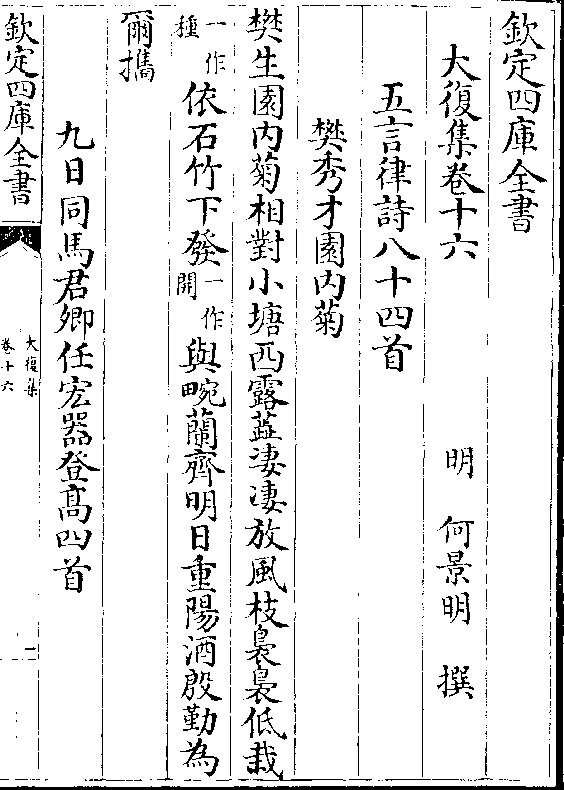 欽定四庫全書
大復集卷十六
明 何景明 撰
五言律詩八十四首
樊秀才園内菊
樊生園内菊相對小塘西露蕋凄凄放風枝裊裊低栽
一作種依石竹下發一作開與畹蘭齊明日重陽酒殷勤為
爾攜
九日同馬君卿任宏器登高四首
欽定四庫全書
大復集
卷十六
一